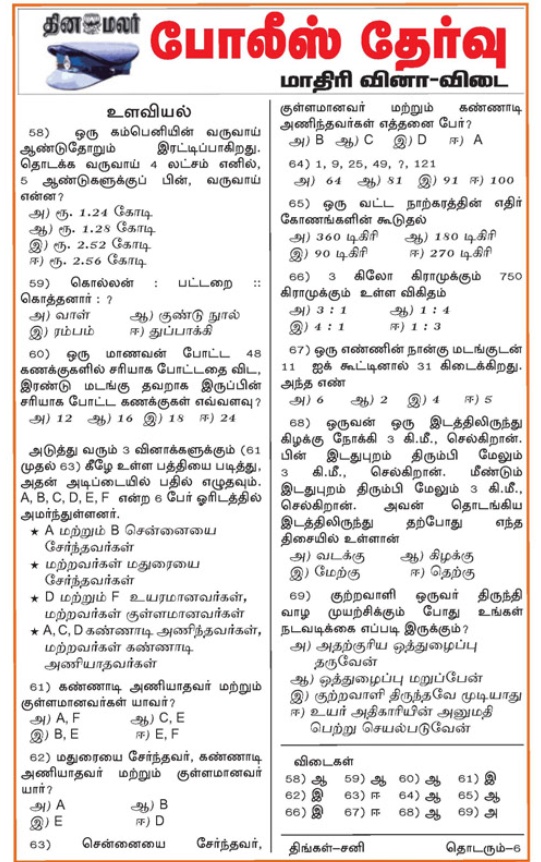 தின மலர்
போலீஸ் தேர்வு
மாதிரி வினா-விடை
உளவியல்
58) ஒரு கம்பெனியின் வருவாய்
ஆண்டுதோறும் இரட்டிப்பாகிறது.
தொடக்க வருவாய் 4 லட்சம் எனில்,
5 ஆண்டுகளுக்குப் பின், வருவாய்
என்ன?
அ) ரூ. 1.24 கோடி
ஆ) ரூ. 1.28 கோடி
இ) ரூ. 2.52 கோடி
ஈ) ரூ. 2.56 கோடி
59) கொல்லன் : பட்டறை ::
கொத்தனார் : ?
அ) வாள் ஆ) குண்டு நூல்
இ) ரம்பம் ஈ) துப்பாக்கி
60) ஒரு மாணவன் போட்ட 48
கணக்குகளில் சரியாக போட்டதை விட,
இரண்டு மடங்கு தவறாக இருப்பின்
சரியாக போட்ட கணக்குகள் எவ்வளவு?
அ) 12 ஆ) 16 இ) 18 ஈ) 24
அடுத்து வரும் 3 வினாக்களுக்கும் (61
முதல் 63) கீழே உள்ள பத்தியை படித்து,
அதன் அடிப்படையில் பதில் எழுதவும்.
A, B, C, D, E, F என்ற 6 பேர் ஓரிடத்தில்
அமர்ந்துள்ளனர்.
★ A மற்றும் B சென்னையை
சேர்ந்தவர்கள்
★ மற்றவர்கள் மதுரையை
சேர்ந்தவர்கள்
★ D மற்றும் F உயரமானவர்கள்,
மற்றவர்கள் குள்ளமானவர்கள்
★ A, C, D கண்ணாடி அணிந்தவர்கள்,
மற்றவர்கள் கண்ணாடி
அணியாதவர்கள்
61) கண்ணாடி அணியாதவர் மற்றும்
குள்ளமானவர்கள் யாவர்?
அ) A, F ஆ) C, E
இ) B, E ஈ) E, F
62) மதுரையை சேர்ந்தவர், கண்ணாடி
அணியாதவர் மற்றும் குள்ளமானவர்
யார்?
அ) A ஆ) B
இ) E ஈ) D
63) சென்னையை சேர்ந்தவர்,
குள்ளமானவர் மற்றும் கண்ணாடி
அணிந்தவர்கள் எத்தனை பேர்?
அ) B ஆ) C இ) D ஈ) A
64) 1, 9, 25, 49, ?, 121
அ) 64 ஆ) 81 இ) 91 ஈ) 100
65) ஒரு வட்ட நாற்கரத்தின் எதிர்
கோணங்களின் கூடுதல்
அ) 360 டிகிரி ஆ) 180 டிகிரி
இ) 90 டிகிரி ஈ) 270 டிகிரி
66) 3 கிலோ கிராமுக்கும் 750
கிராமுக்கும் உள்ள விகிதம்
அ) 3 : 1 ஆ) 1 : 4
இ) 4 : 1 ஈ) 1 : 3
67) ஒரு எண்ணின் நான்கு மடங்குடன்
11 ஐக் கூட்டினால் 31 கிடைக்கிறது.
அந்த எண்
அ) 6 ஆ) 2 இ) 4 ஈ) 5
68) ஒருவன் ஒரு இடத்திலிருந்து
கிழக்கு நோக்கி 3 கி.மீ., செல்கிறான்.
பின் இடதுபுறம் திரும்பி மேலும்
3 கி.மீ., செல்கிறான். மீண்டும்
இடதுபுறம் திரும்பி மேலும் 3 கி.மீ.,
செல்கிறான். அவன் தொடங்கிய
இடத்திலிருந்து தற்போது எந்த
திசையில் உள்ளான்
அ) வடக்கு ஆ) கிழக்கு
இ) மேற்கு ஈ) தெற்கு
69) குற்றவாளி ஒருவர் திருந்தி
வாழ முயற்சிக்கும் போது உங்கள்
நடவடிக்கை எப்படி இருக்கும்?
அ) அதற்குரிய ஒத்துழைப்பு
தருவேன்
ஆ) ஒத்துழைப்பு மறுப்பேன்
இ) குற்றவாளி திருந்தவே முடியாது
ஈ) உயர் அதிகாரியின் அனுமதி
பெற்று செயல்படுவேன்
விடைகள்
58) ஆ 59) ஆ 60) ஆ 61) இ
62) இ 63) ஈ 64) ஆ 65) ஆ
66) இ 67) ஈ 68) அ 69) அ
திங்கள்-சனி தொடரும்-6